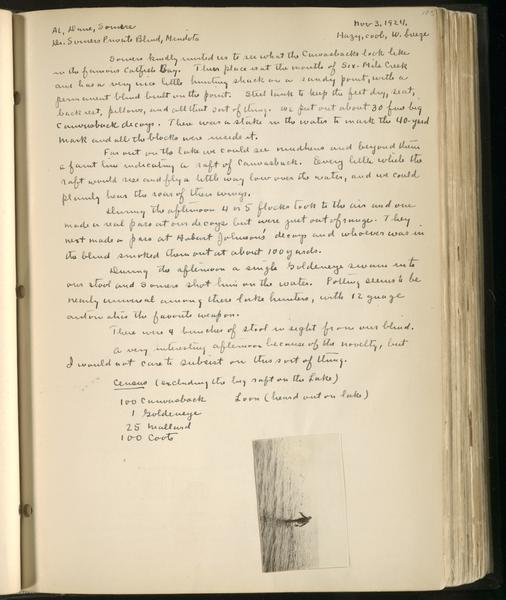 AL, Dane, Somers Nov 3, 1924.
Dr. Somers Private Blind, Mendota Hazy, cool, W. breeze
Somers kindly invited us to see what the Canvasbacks look like
in the famous Catfish Bay. Their place is at the mouth of Six-Mile Creek
and has a very nice little hunting shack on a sandy point, with a
permanent blind built on the point. Steel tank to keep the feet dry, seat,
back rest, pillows, and all that sort of thing. We put out about 30 fine big
canvasback decoys. There was a stake in the water to mark the 40-yard
mark and all the blocks were inside it.
Far out on the lake we could see mudhens and beyond them
a faint line indicating a raft of Canvasback. Every little while the
raft would rise and fly a little way low over the water, and we could
plainly hear the roar of their wings.
During the afternoon 4 or 5 flocks took to the air and one
made a real pass at our decoys but were just out of range. They
next made a pass at Hobart Johnson's decoys and whoever was in
the blind smoked them out at about 100 yards.
During the afternoon a single Goldeneye swam into
our stool and Somers shot him on the water. Potting seems to be
nearly universal among these lake hunters, with 12 guage
and on alive the favorite weapon.
There were 4 bunches of stool in sight from our blind.
A very interesting afternoon because of the novelty, but
I would not care to subsist on this sort of thing.
Census (excluding the big raft on the Lake)
100 Canvasback Loon (heard out on lake)
1 Goldeneye
25 Mallard
100 Coots